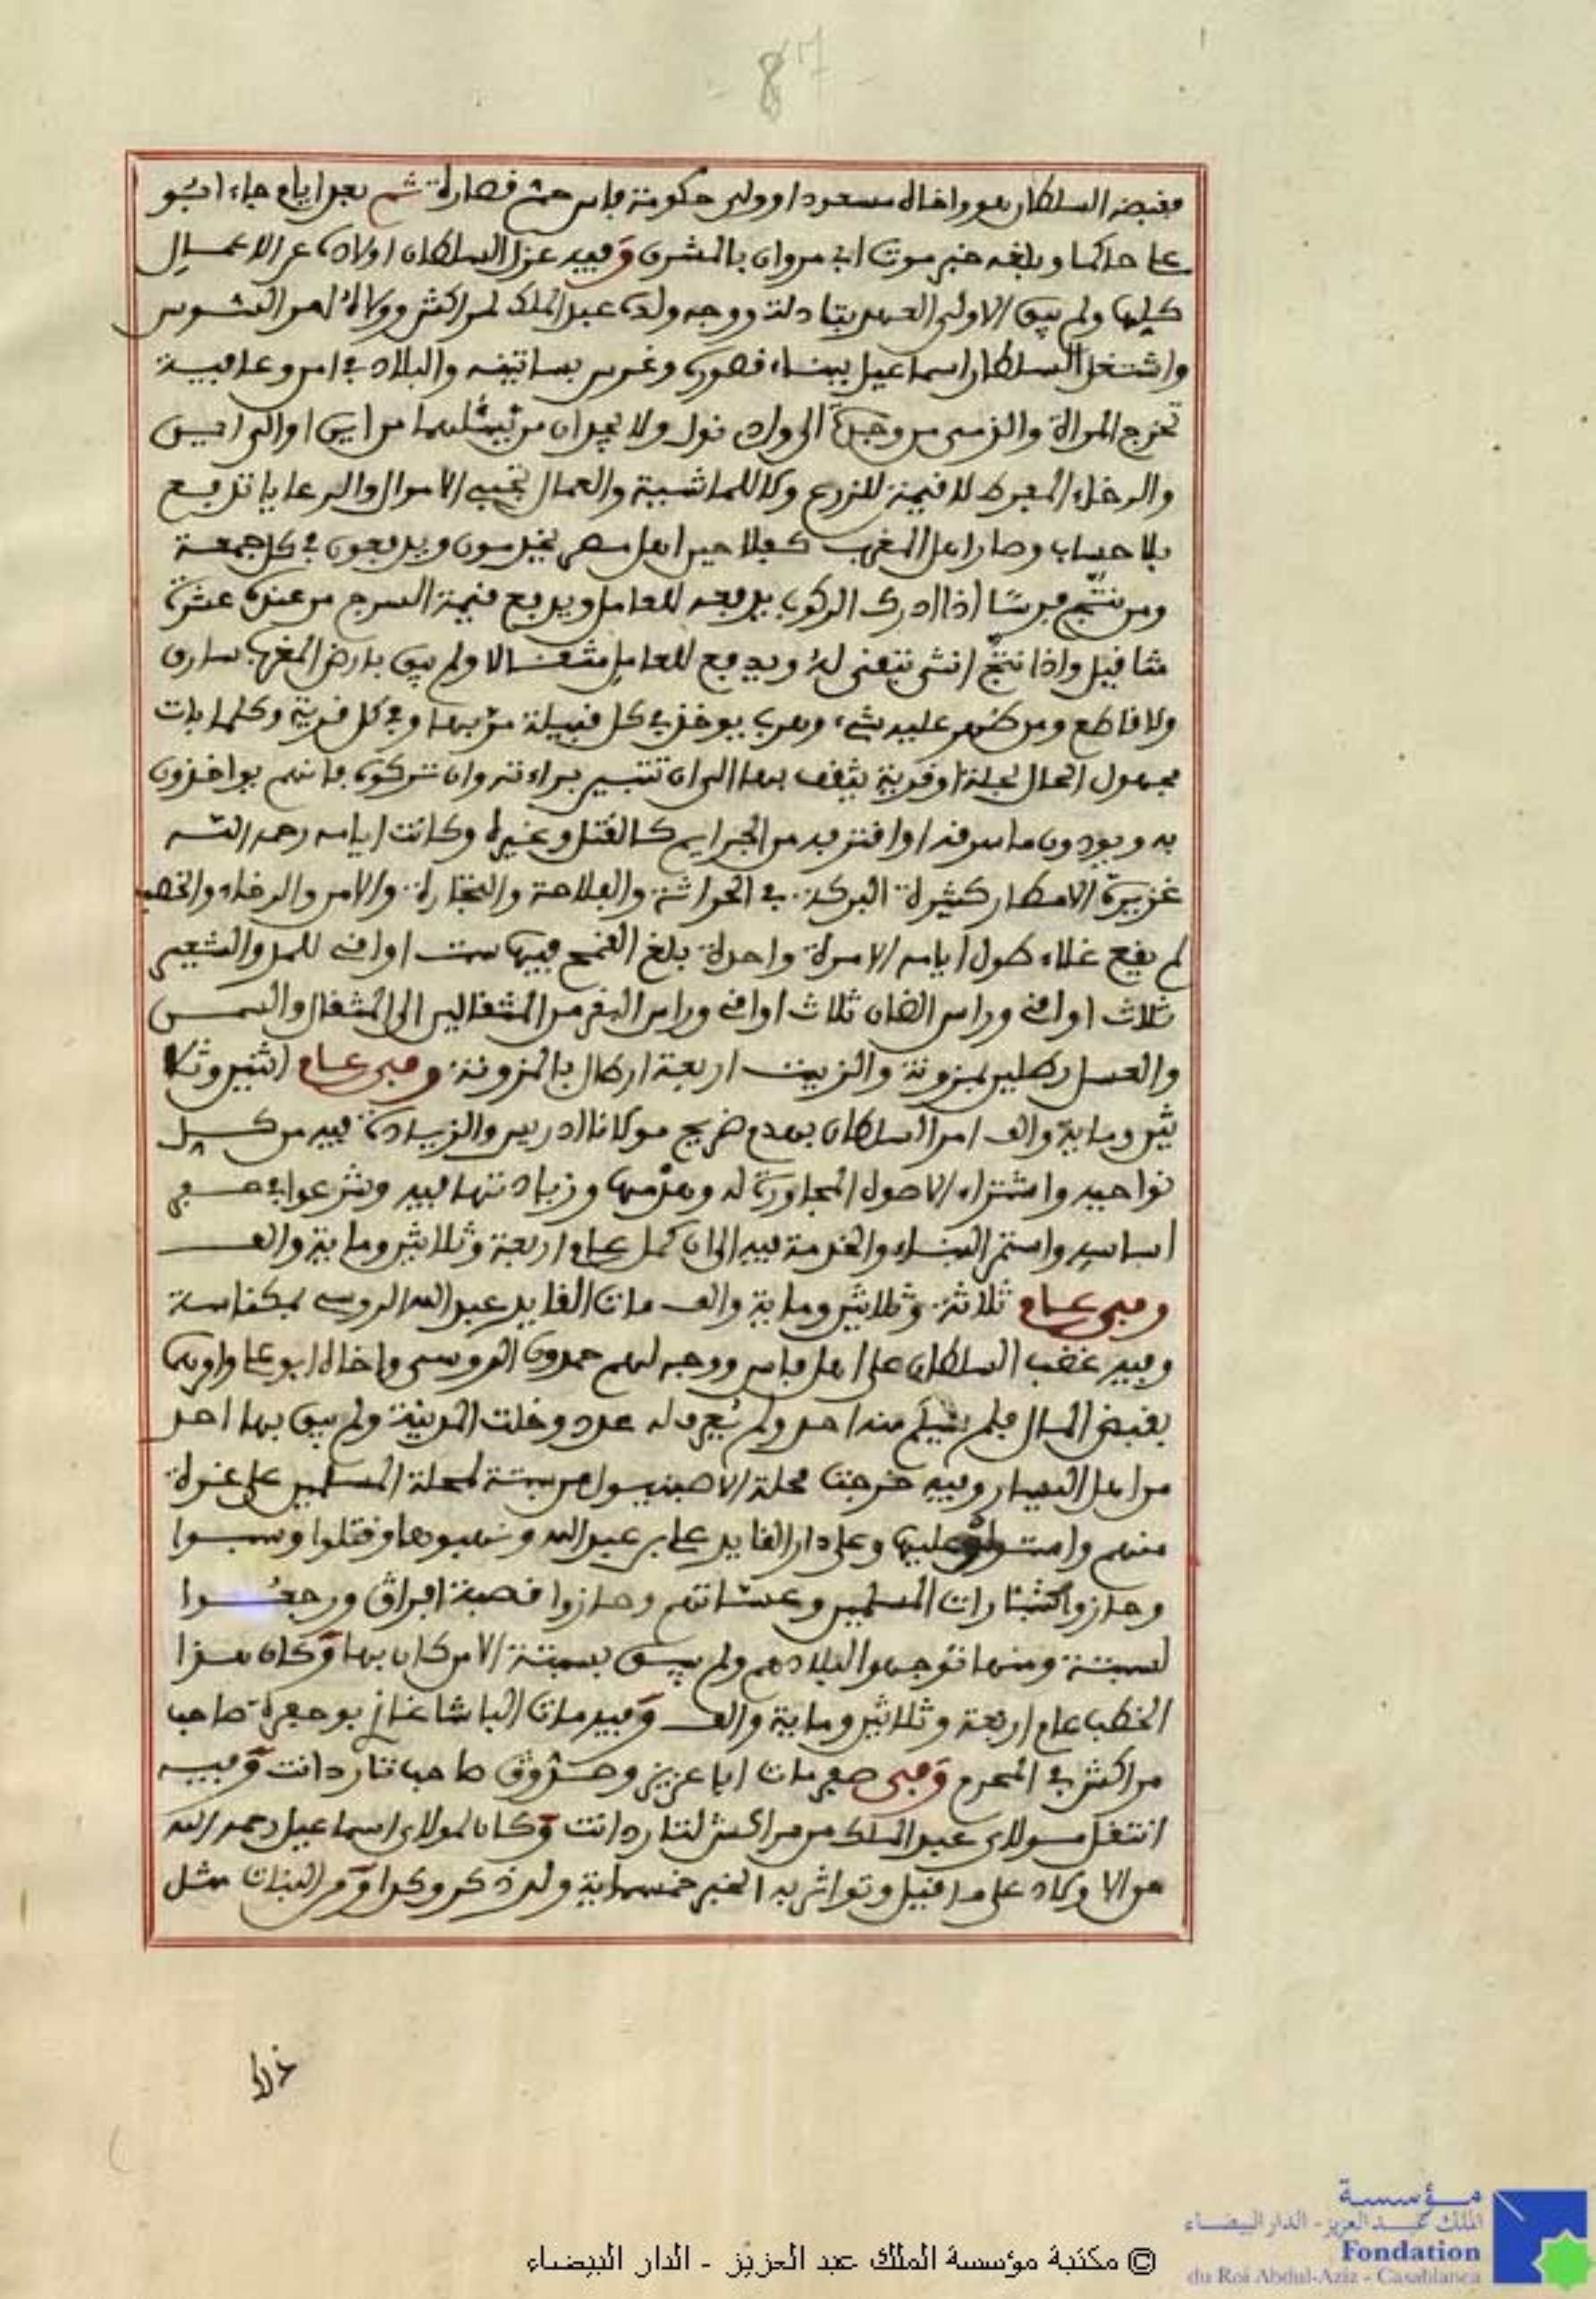 87
فقبض السلطان عبو واخاه مسعودا وولى حكومة فاس حمّ قصارة ثم بعد ايام جاء ابو
علي حاكما وبلغه خبر موت ابي مروان بالمشرق وفيه عزل السلطان اولاده عن الاعمال
كلها ولم يبق الا ولي العهد بتادلة ووجه ولده عبد الملك لمراكش وولاه امر السوس
واشتغل السلطان اسماعيل ببناء قصوره وغرس بساتينه والبلاد في امن وعافية
تخرج المراة والذمي من وجدة الى واد نول ولا يجدان من يسئلهما من اين او الى اين
والرخاء المفرط لا قيمة للزرع ولا للماشية والعمال تجبي الاموال والرعايا تدفع
بلا حساب وصار اهل المغرب كفلاحين اهل مصر يخدمون ويدفعون في كل جمعة
ومن نتّج فرسًا اذا ادرك الركوب يدفعه للعامل ويدفع قيمة السرج من عنده عشرة
مثاقيل واذا نتّج انثى تبقى له ويدفع للعامل مثقالا ولم يبق بارض المغرب سارق
ولا قاطع ومن ظهر عليه شيء وهرب يوخذ في كل قبيلة مرّ بها وفي كل قرية وكلما بات
مجهول الحال بحلة او قرية يثقف بها الى ان تتبين براءته وان تركوه فانهم يواخذون
به ويودون ما سرقه او اقترفه من الجرايم كالقتل وغيره وكانت ايامه رحمه الله
غزيرة الامطار كثيرة البركة في الحراثة والفلاحة والتجارة والامن والرخاء والخصب
لم يقع غلاء طول ايامه الا مرة واحدة بلغ القمح فيها ست اواقي للمد والشعير
ثلاث اواقي وراس الضان ثلاث اواقي وراس البقر من المثقالين الى المثقال والسمن
والعسل رطلين بموزونة والزيت اربعة ارطال بالموزونة وفي عام اثنين وثلا
ثين وماية والف امر السلطان بهدم ضريح مولانا ادريس والزيادة فيه من كل
نواحيه واشتراء الاصول المجاورة له وهدمها وزيادتها فيه وشرعوا في حفر
اساسه واستمر البناء والخدمة فيه الى ان كمل عام اربعة وثلاثين وماية والف
وفي عام ثلاثة وثلاثين وماية والف مات القايد عبد الله الروسي بمكناسة
وفيه غضب السلطان على اهل فاس ووجه لهم حمدون الروسي واخاه ابو علي وامرهما
بقبض المال فلم يسلم منه احد ولم يُعرف له عدد وخلت المدينة ولم يبق بها احد
من اهل اليسار وفيه خرجت محلة الاصبنيول من سبتة لمحلة المسلمين على غرة
منهم واستولوا عليها وعلى دار القايد علي بن عبد الله ونهبوها وقتلوا وسبوا
وحازوا كشارات المسلمين وعساتهم وحازوا قصبة افراق ورجعوا
لسبتة ومنها توجهوا لبلادهم ولم يبق بسبتة الا من كان بها وكان هذا
الخطب عام اربعة وثلاثين وماية والف وفيه مات الباشا غازي بو حفرة صاحب
مراكش في المحرم وفي صفر مات ابا عزيز وصدّوق صاحب تارودانت وفيه
انتقل مولاي عبد الملك من مراكش لتارودانت وكان لمولاي اسماعيل رحمه الله
من الاولاد على ما قيل وتواتر به الخبر خمسماية ولد ذكر وكذا من البنات مثل
ذلك
مؤسسة
الملك عبد العزيز - الدار البيضاء
Fondation
du Roi Abdul-Aziz - Casablanca
© مكتبة مؤسسة الملك عبد العزيز - الدار البيضاء